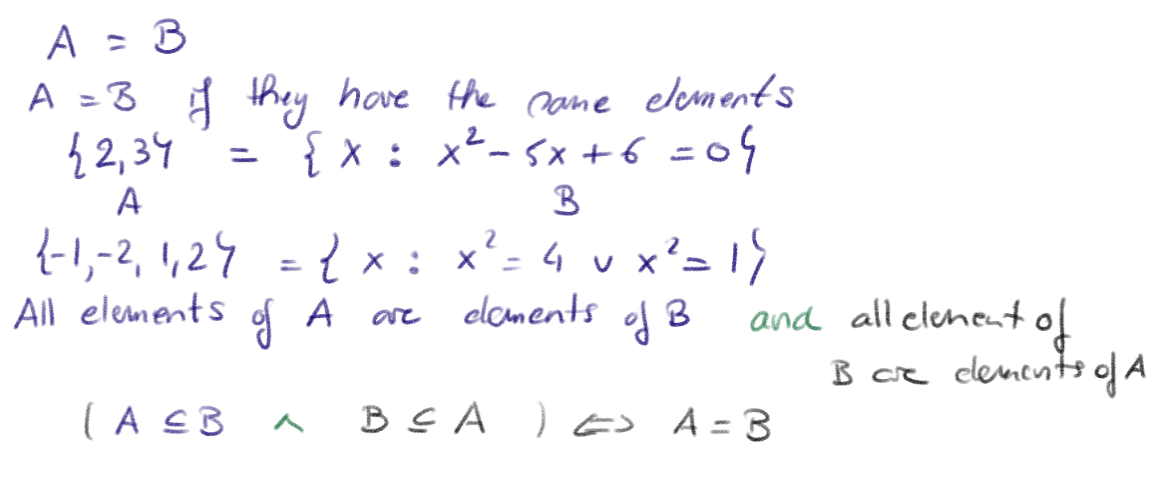 A = B
A = B if they have the same elements
{2,3} = { x : x² - 5x + 6 = 0}
A B
{-1,-2, 1,2} = { x : x² = 4 ∨ x² = 1}
All elements of A are elements of B and all element of
B are elements of A
( A ⊆ B ∧ B ⊆ A ) ⇔ A = B